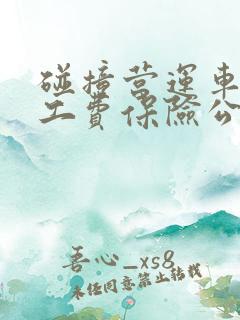 碰撞营運車
工費保險公
吾心_xs8
未经同意禁止转载